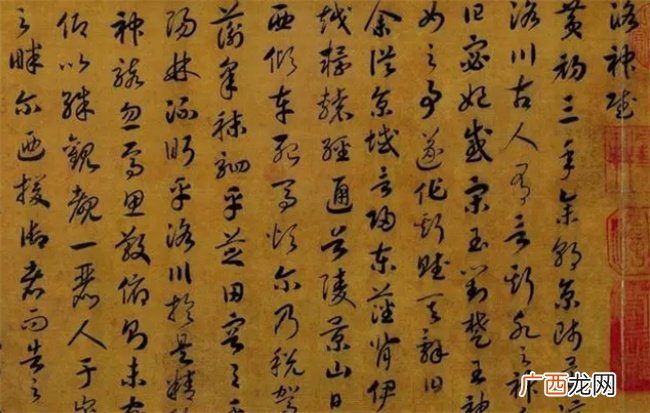 洛神賦
黄初三年余朝京師還
洛川古人有言斯水之神
曰宓妃感宋玉對楚王神
女之事遂作斯賦其辭曰
余從京域言歸東藩背伊
越轘轅經通谷陵景山日
西傾車殆馬煩尔乃税駕
蘅皋秣駟乎芝田容與乎
陽林流眄乎洛川於是精
神駭忽焉思散俯則未察
仰以殊觀覩一麗人于巖
之畔尔迺援御者而告之
广西龙网